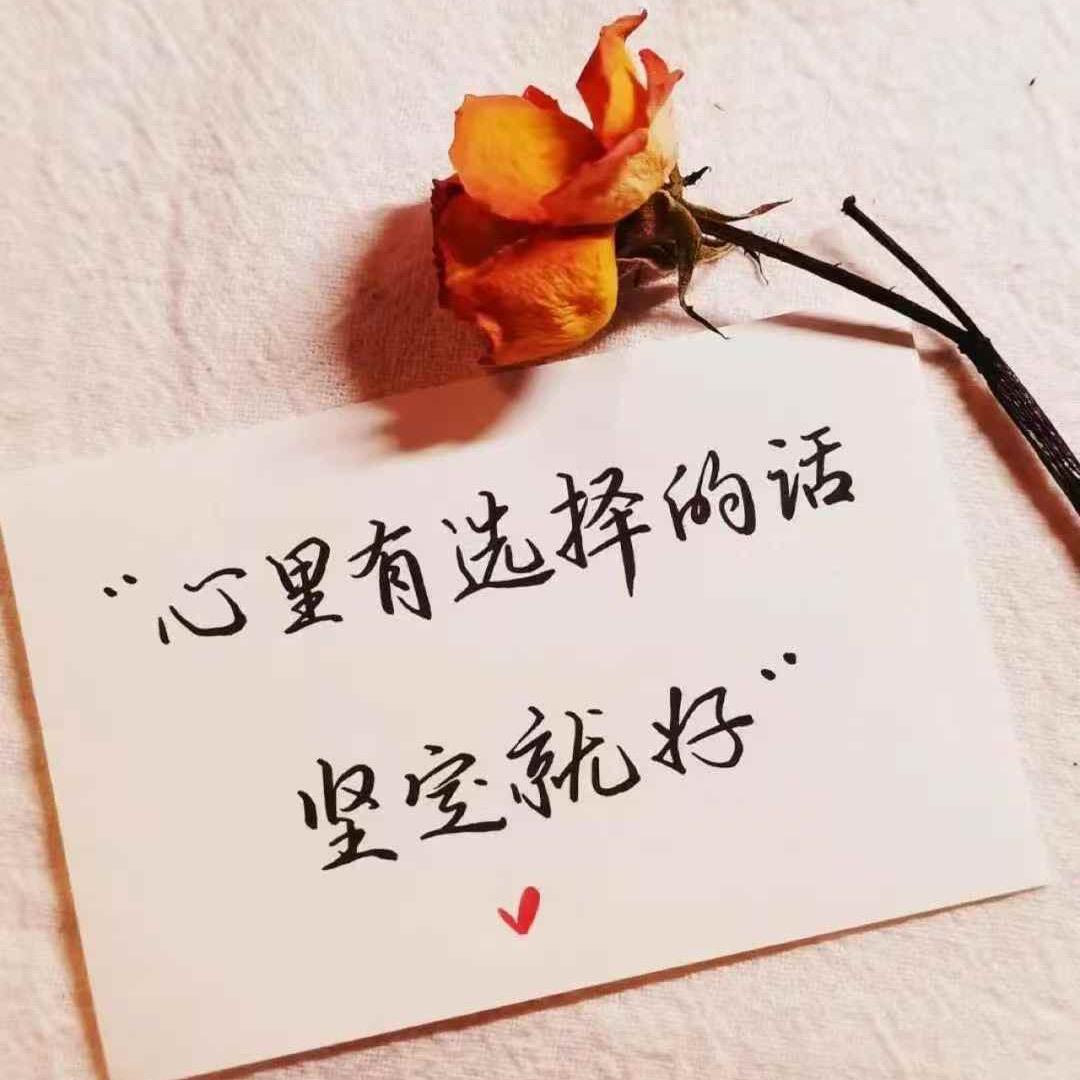 “心里有选择的话
坚定就好”